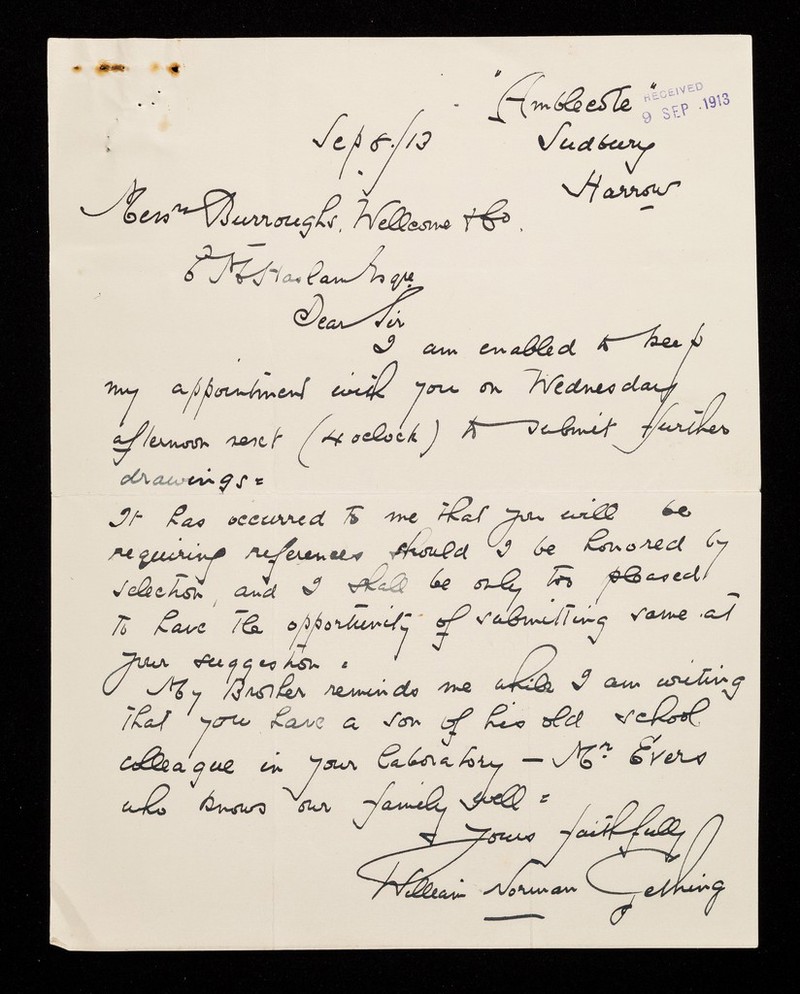 "Amblecote"
RECEIVED
9 SEP .1913
Sep 8./13
Sudbury
Harrow
Messrs Burroughs, Wellcome & Co.
Haslam Esqre
Dear Sir
I am enabled to keep
my appointment with you on Wednesday
afternoon next (4 oclock) to submit further
drawings =
It has occurred to me that you will be
requiring references should I be honored by
selection, and I shall be only too pleased
to have the opportunity of submitting same at
your suggestion =
My Brother reminds me while I am writing
that you have a son of his old school
colleague in your laboratory — Mr. Evers
who knows our family well =
Yours faithfully
William Norman Gething